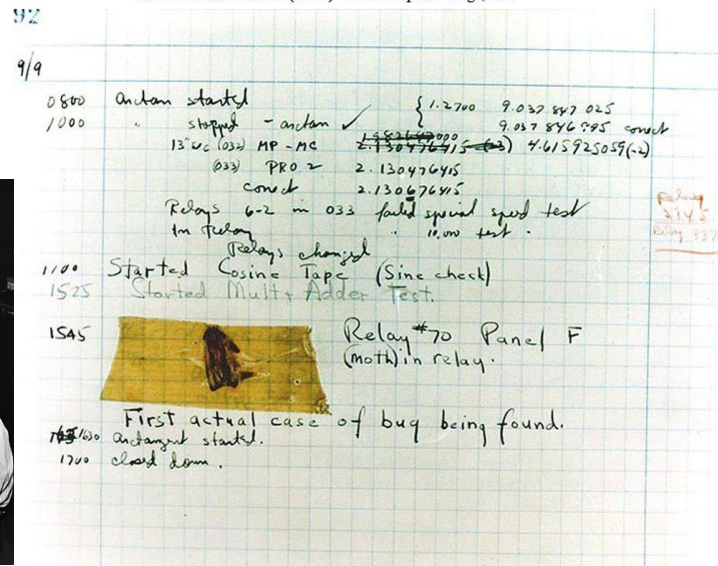 92
9/9
0800 Antan started { 1.2700 9.037 847 025
1000 " stopped - antan ✓ 9.037 846 995 conect
13"uc (032) MP - MC 2.130476415 4.615925059(-2)
(033) PRO 2 2.130476415
conect 2.130676415
Relays 6-2 in 033 failed special speed test
In Relay " 10,000 test.
Relays changed
1100 Started Cosine Tape (Sine check)
1525 Started Mult + Adder Test.
1545 Relay #70 Panel F
(moth) in relay.
First actual case of bug being found.
1630 antangent started.
1700 closed down.
Relay